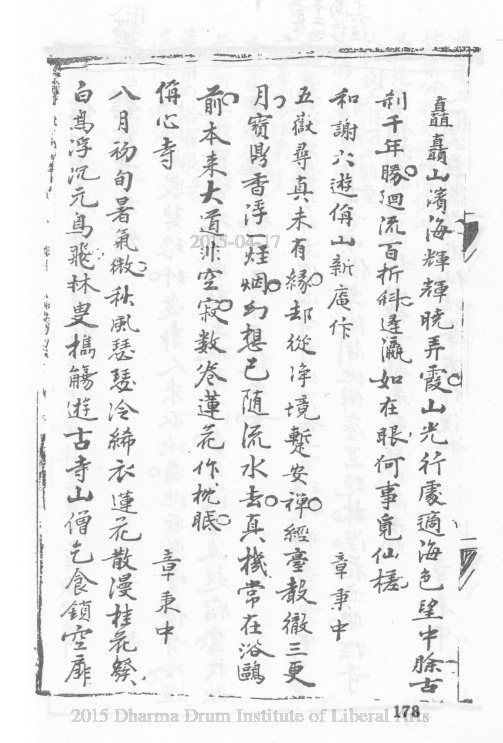 矗矗山濱海輝輝曉弄霞山光行處適海色望中賒古
剎千年勝迴流百折斜蓬瀛如在眼何事覓仙槎
和謝六遊偁山新廣作 章秉中
五嶽尋真未有緣却從净境蹔安禪經臺鼓徹三更
月寶鼎香浮一炷烟幻想已随流水去真機常在浴鷗
前本来大道非空寂数卷蓮花作枕眠
偁心寺 章秉中
八月初旬暑氣微秋風瑟瑟冷絺衣蓮花散漫桂花發
白鳥浮沉元鳥飛林叟攜觴遊古寺山僧乞食鎖空扉
2015-04-17
178
2015 Dharma Drum Institute of Liberal Arts